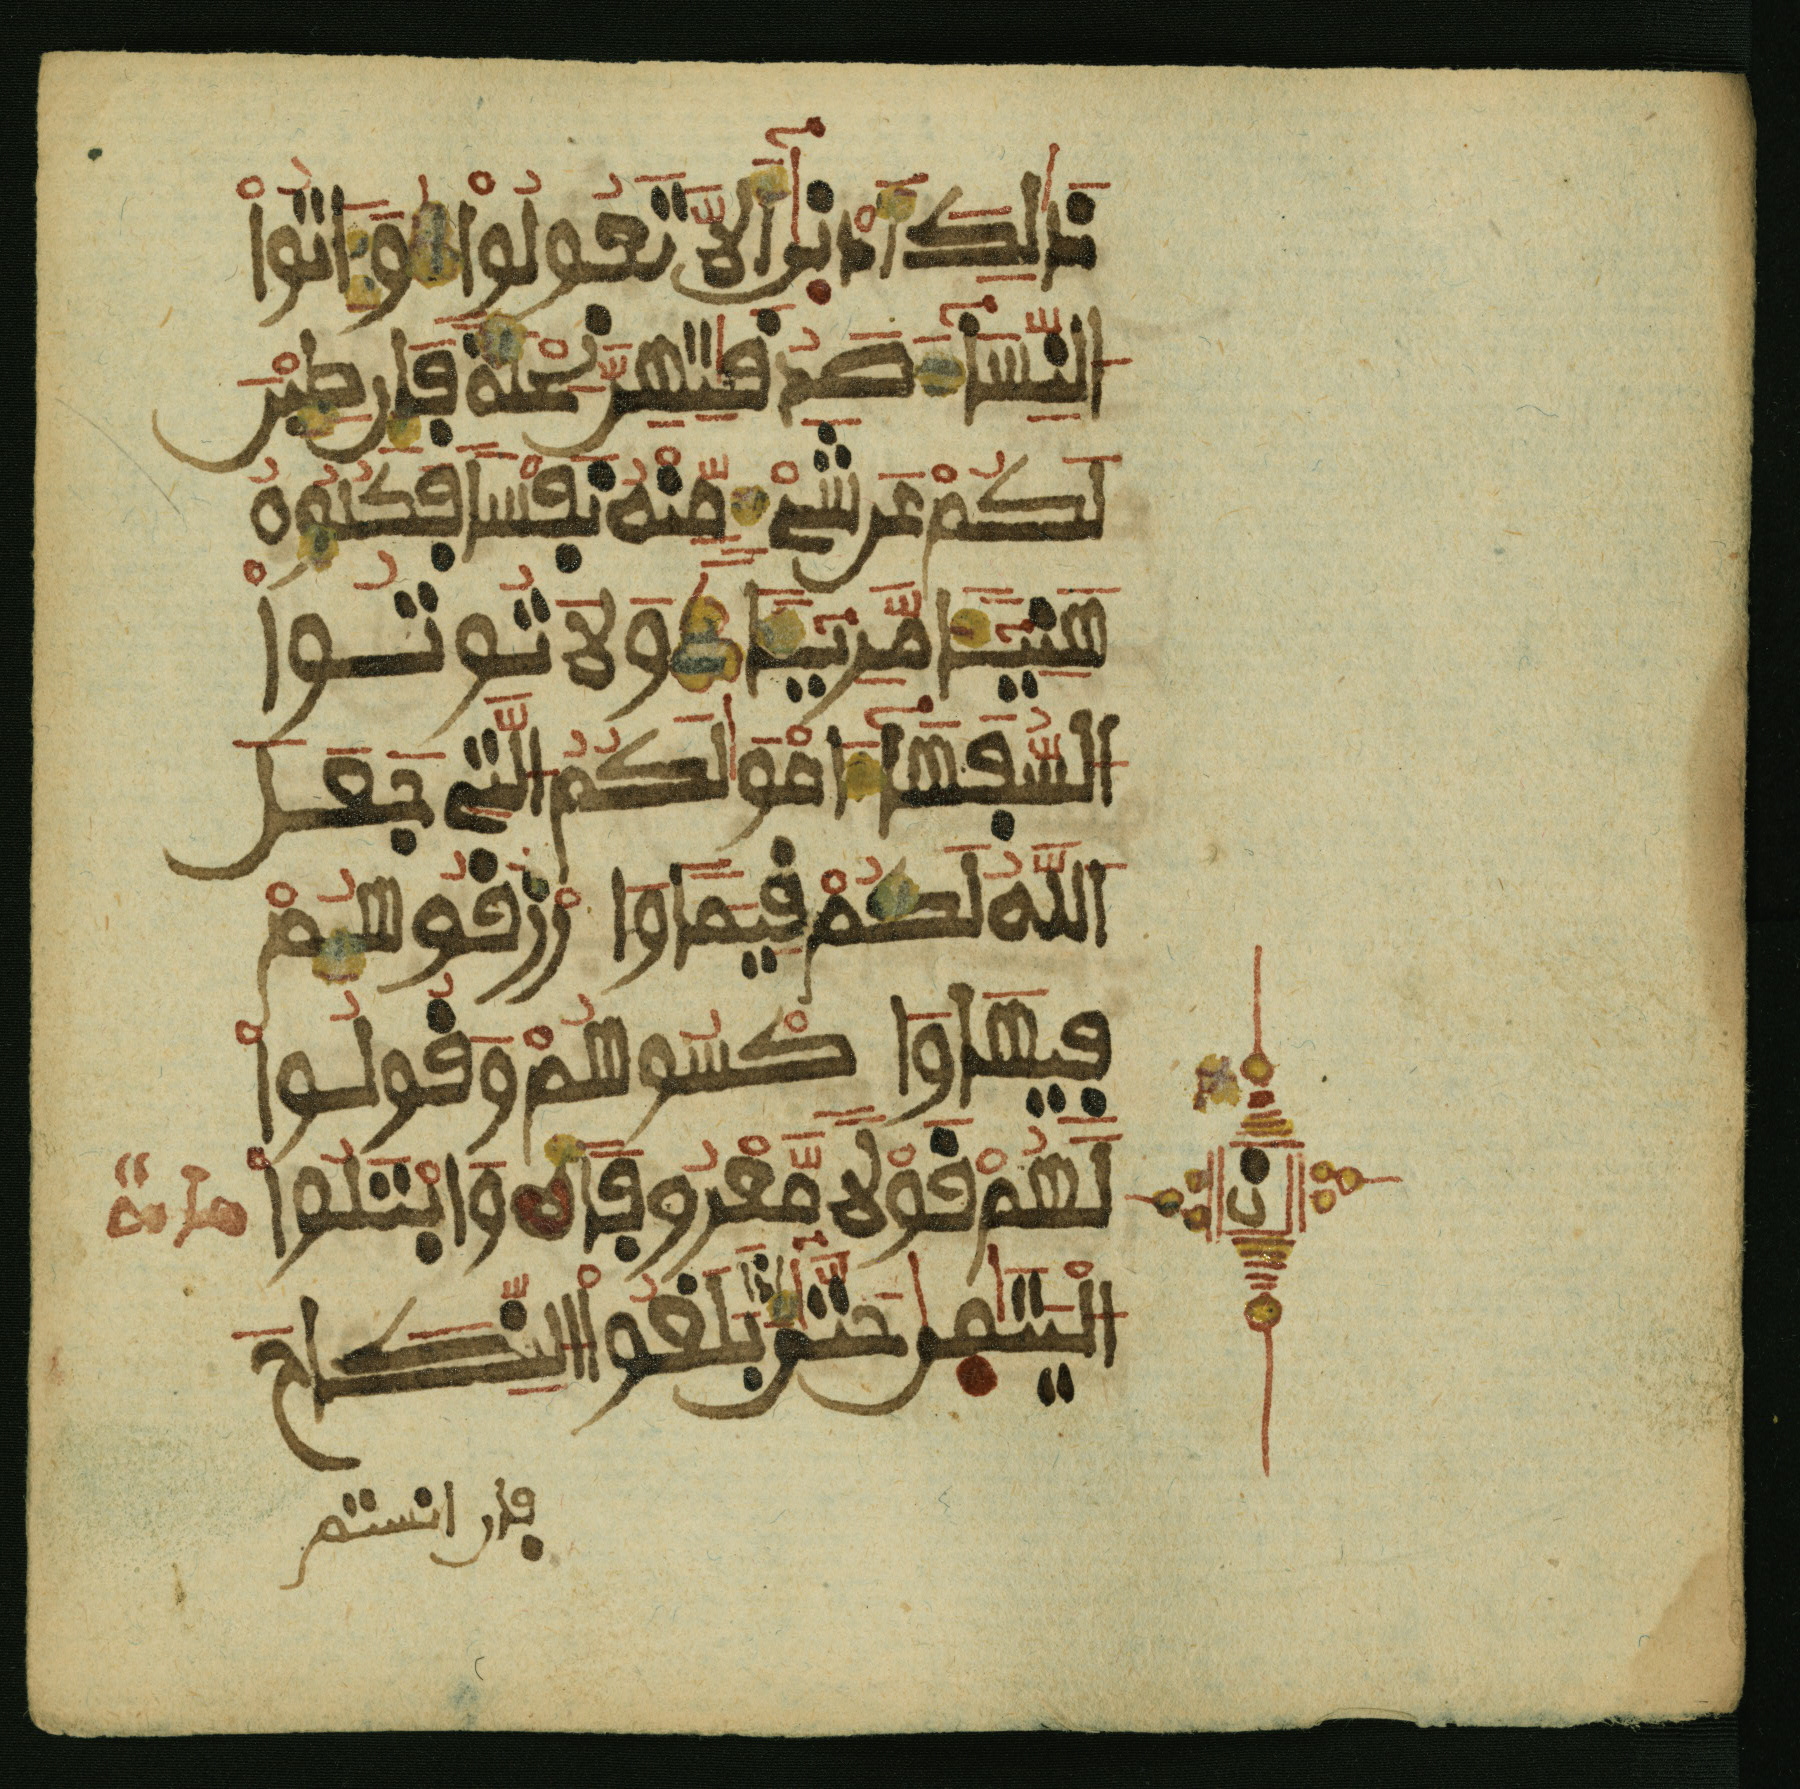 ذَٰلِكَ أَدْنَىٰ أَلَّا تَعُولُوا وَءَاتُوا
النِّسَاءَ صَدُقَٰتِهِنَّ نِحْلَةً فَإِن طِبْنَ
لَكُمْ عَن شَيْءٍ مِّنْهُ نَفْسًا فَكُلُوهُ
هَنِيئًا مَّرِيئًا وَلَا تُوتُوا
السُّفَهَاءَ امْوَٰلَكُمُ الَّتِي جَعَلَ
اللَّهُ لَكُمْ قِيَمًا وَا رْزُقُوهُمْ
فِيهَا وَا كْسُوهُمْ وَقُولُوا
لَهُمْ قَوْلًا مَّعْرُوفًا وَابْتَلُوا
الْيَتَٰمَىٰ حَتَّىٰ إِذَا بَلَغُوا النِّكَاحَ
فإن انستم